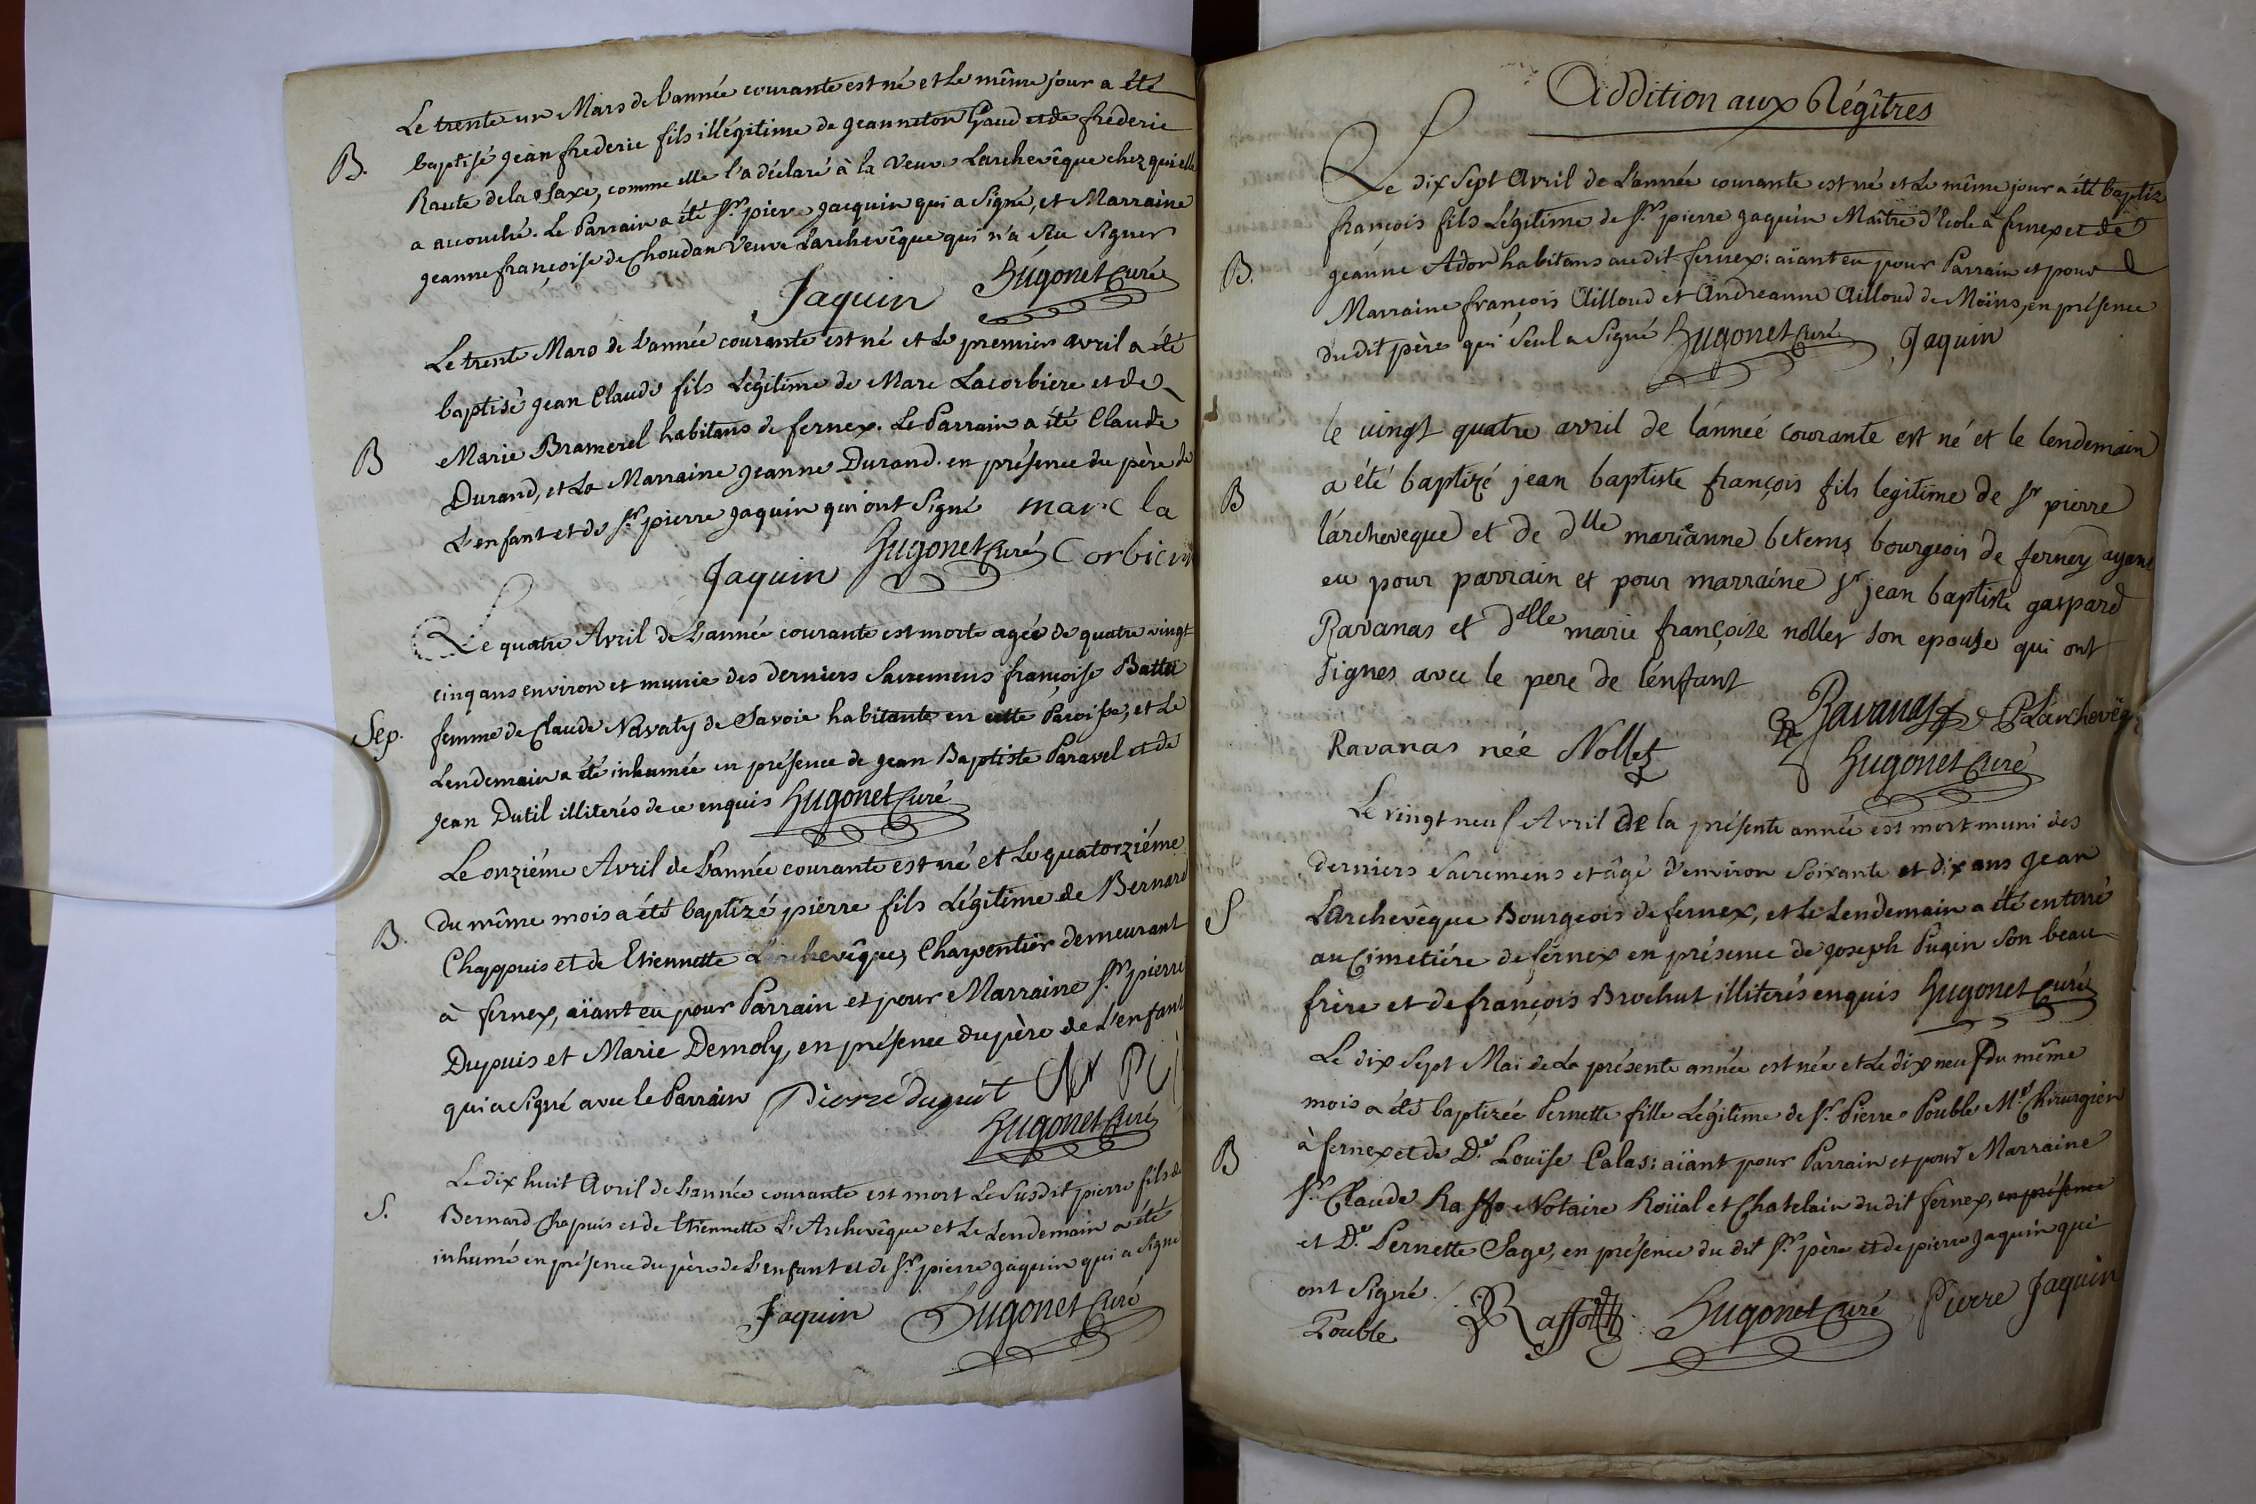 Le trente un Mars de l'année courante est né et le même jour a été
B. baptisé jean frederic fils illégitime de jeanneton Gaud et de frederic
Raute de la Saxe, comme elle l'a déclaré à la veuve Larchevêque chez qui elle
a accouché. Le Parrain a été Sr. pierre jacquin qui a signé, et Marraine
jeanne françoise de Choudan veuve Larchevêque qui n'a sçu signer
Jaquin Hugonet Curé
Le trente Mars de l'année courante est né et le premier avril a été
baptisé jean Claude fils légitime de Marc Lacorbiere et de
B Marie Bramerel habitans de fernex. Le Parrain a été Claude
Durand, et la Marraine jeanne Durand. en présence du père de
l'enfant et de Sr. pierre jaquin qui ont signé marc la
Jaquin Hugonet Curé Corbiere
Le quatre Avril de l'année courante est morte agée de quatre vingt
cinq ans environ et munie des derniers sacremens françoise Battu
Sep. femme de Claude Navaty de Savoie habitante en cette Paroisse, et le
lendemain a été inhumée en présence de jean Baptiste Paravel et de
jean Dutil illiterés de ce enquis Hugonet Curé
Le onziéme Avril de l'année courante est né et le quatorziéme
B. du même mois a été baptizé pierre fils légitime de Bernard
Chappuis et de Etiennette Larchevêque, Charpentier demeurant
à fernex, aïant eu pour Parrain et pour Marraine Sr. pierre
Dupuis et Marie Demoly, en présence du père de l'enfant
qui a signé avec le Parrain Pierre dupuit
Hugonet Curé
Le dix huit Avril de l'année courante est mort le susdit pierre fils de
S. Bernard Chapuis et de Etiennette L'Archevêque et le lendemain a été
inhumé en présence du père de l'enfant et de Sr. pierre jaquin qui a signé
Jaquin Hugonet Curé
Addition aux Régîtres
Le dix sept Avril de l'année courante est né et le même jour a été baptizé
françois fils légitime de Sr. pierre jaquin Maître d'Ecole à fernex et de
B. jeanne Ador habitans au dit fernex: aïant eu pour Parrain et pour
Marraine françois Ailloud et Andreanne Ailloud de Moïns, en présence
du dit père qui seul a signé Hugonet Curé Jaquin
le vingt quatre avril de l'année courante est né et le lendemain
B a été baptizé jean baptiste françois fils legitime de Sr pierre
l'archeveque et de dlle marianne betems bourgeois de ferney ayant
eu pour parrain et pour marraine Sr jean baptiste gaspard
Ravanas et delle marie françoise nollet son epouse qui ont
signes avec le pere de l'enfant
Ravanas P Larchevêq
Ravanas née Nollet Hugonet Curé
Le vingt neuf Avril de la présente année est mort muni des
derniers sacremens et âgé d'environ soixante et dix ans jean
S Larchevêque Bourgeois de fernex, et le lendemain a été enterré
au Cimetiére de fernex en présence de joseph Pugin son beau-
frère et de françois Brochut illiterés enquis Hugonet Curé
Le dix sept Mai de la présente année est née et le dix neuf du même
mois a été baptizée Pernette fille légitime de Sr. Pierre Pouble Me. Chirurgien
B à fernex et de De. Louïse Calas: aïant pour Parrain et pour Marraine
Sr. Claude Raffo Notaire Roïial et Chatelain du dit fernex, en présence
et De. Pernette Sage, en présence du dit Sr. père et de pierre jaquin qui
ont signé. Raffo Hugonet Curé Pierre Jaquin
Pouble